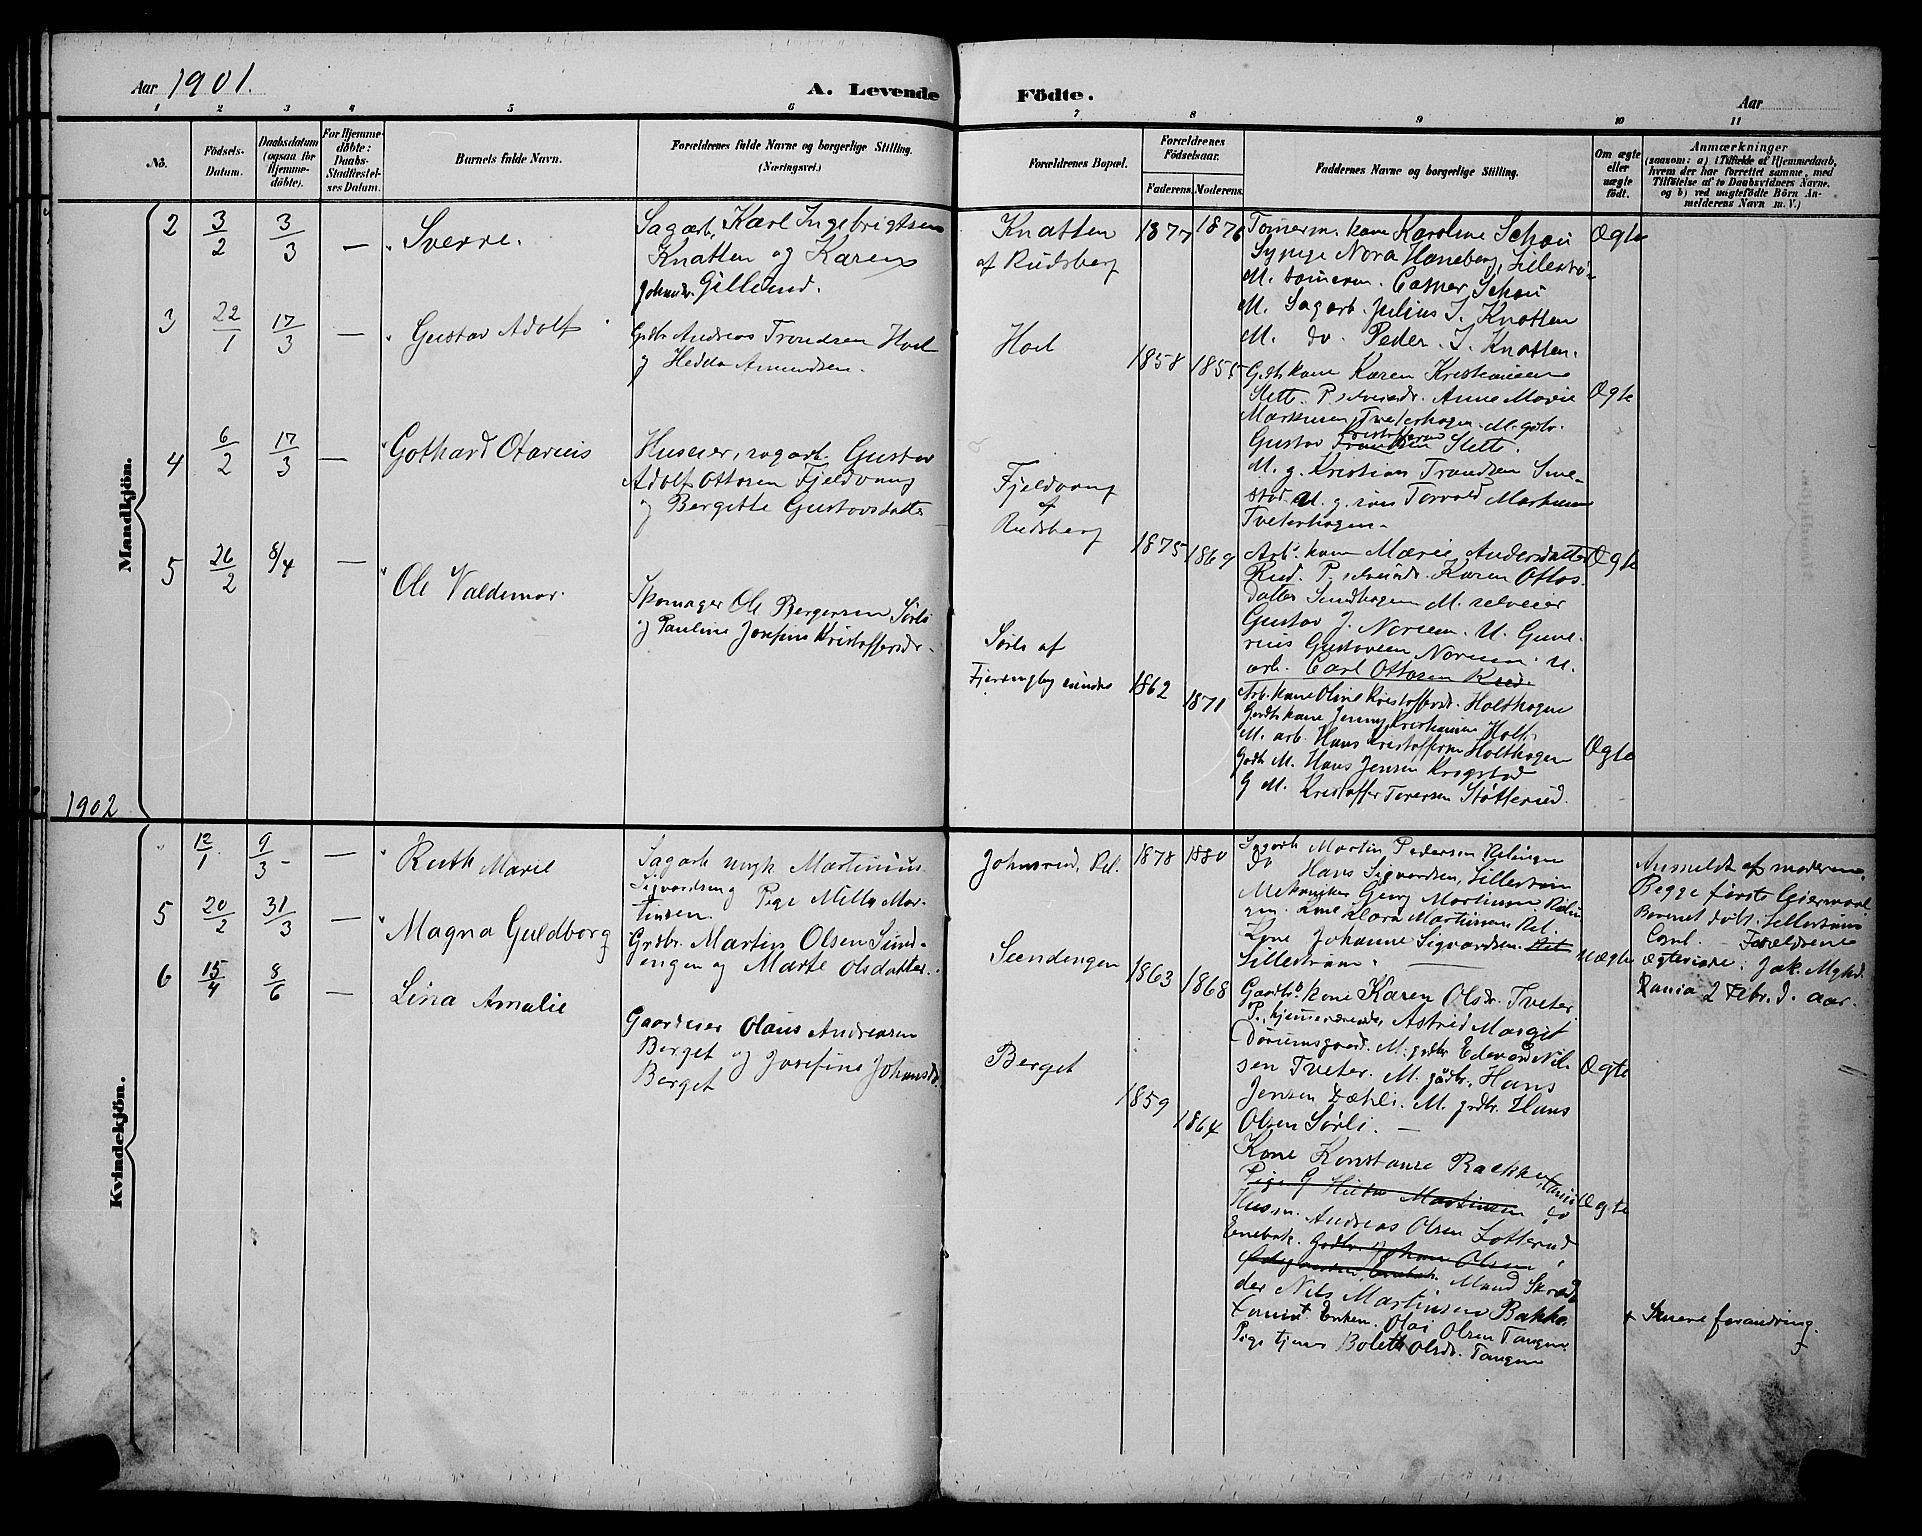 Aar 1901.
A. Levende Födte.
Aar
1 2 3 4 5 6 7 8 9 10 11
No.
Födsels-Datum.
Daabsdatum (ogsaa for Hjemmedöbte).
For Hjemmedöbte: Daabs-Stadfæstelses Datum.
Barnets fulde Navn.
Forældrenes fulde Navne og borgerlige Stilling.
(Næringsvei.)
Forældrenes Bopæl.
Forældrenes Födselsaar.
Faderens. Moderens.
Faddernes Navne og borgerlige Stilling.
Om ægte eller uægte födt.
Anmærkninger
(saasom: a) i Tilfælde af Hjemmedaab,
hvem der har forrettet samme, med
Tilföielse af to Daabsvidners Navne.
og b) ved uægtefödte Börn Anmelderens Navn m. V.)
Mandkjön.
2 3/2 3/3 — Sverre.
Sagarb. Karl Ingebrigtsen
Knatten og Karen
Johansdr. Gillund.
Knatten
af Rudsberg
1877 1876
Tømerm. kone Karoline Schou
Sypige Nora Haneborg, Lillestrø-
M. tømerm. Casper Schou
M. Sagarb. Julius I. Knatten
M. do. Peder I. Knatten.
Ægte
3 22/1 17/3 — Gustav Adolf
Gdbr. Andreas Trondsen Hoel
og Hedda Amundsen.
Hoel
1858 1855
Gdbs kone Karen Kristiansen
Slett. P. selveierdr. Anne Marie
Markusen Tveterhagen. M. gdbr.
Gustav Kristoffersen Slett.
M. g. Kristian Trondsen Sme-
stad U. g. søn Torvald Markusen
Tveterhagen.
Ægte
4 6/2 17/3 — Gothard Otarius
Huseier, sagarb. Gustav
Adolf Ottosen Fjeldvang
og Bergitte Gustavsdatter
Fjeldvang
af
Rudsberg
1875 1869
Arb. kone Marie Andersdatter
Rud. P. selveierdr. Karen Ottos-
datter Sundhagen M. selveier
Gustav J. Noreen. U. Gune-
rius Gustavsen Noreen. U.
arb. Carl Ottosen Rud.
Ægte
5 26/2 8/4 — Ole Valdemar.
Skomager Ole Bergersen Sørli
og Pauline Josefine Kristoffersdr.
Sørli af
Fjerdingby søndre
1862 1871
Arb. kone Oline Kristoffersdr. Holthagen
Gaardbs kone Jenny Kristiansen Holt.
M. arb. Hans Kristoffersen Holthagen
Gdbr. M. Hans Jensen Krogstad
G. M. Kristoffer Toresen Støtterud.
Ægte
1902
Kvindekjön.
12/1 9/3 — Ruth Marie
Sagarb. ungk. Martinius
Sigvardsen og Pige Milly Mar-
tinsen.
Johnsrud, Rel.
1878 1880
Sagarb. Martin Pedersen Relingen
do Hans Sigvardsen, Lillestrøm
Mekaniker Georg Martinsen Relin
gen. Kone Klara Martinsen Rel.
Kone Johanne Sigvardsen
Lillestrøm.
Uægte
Anmeldt af moderen.
Begge første Leiermaal
Barnet døbt i Lillestrøm
Capel. — Forældrene
ægteviede:
2 Febr. d. aar.
5 20/2 31/3 — Magna Guldborg
Grdbr. Martin Olsen Sund-
engen og Marte Olsdatter.
Sundengen
1863 1868
Gaardbs kone Karen Olsdr. Tveter
P. hjemmeværende, Astrid Margit
Dørumsgaard. M. grdbr. Edevard Nil-
sen Tveter. M. gdbr. Hans
Jensen Dæhli. M. grdbr. Hans
Olsen Sørli. —
Ægte
6 15/4 8/6 — Lina Amalie
Gaardeier Olaus Andreasen
Berget og Josefine Johansdr.
Berget
Berget
1859 1864
Kone Konstanse Bakke,
Pige Martinsen do
Husm. Andreas Olsen Lotterud
Enebak. Gdbr. Johan Olsen
Enebak. Mand Skræd-
der Nils Martinsen Bakke.
Enkem. Olai Olsen Tangen
Pige tjener Bolette Olsdr. Tangen
Ægte
+ Senere forandring.